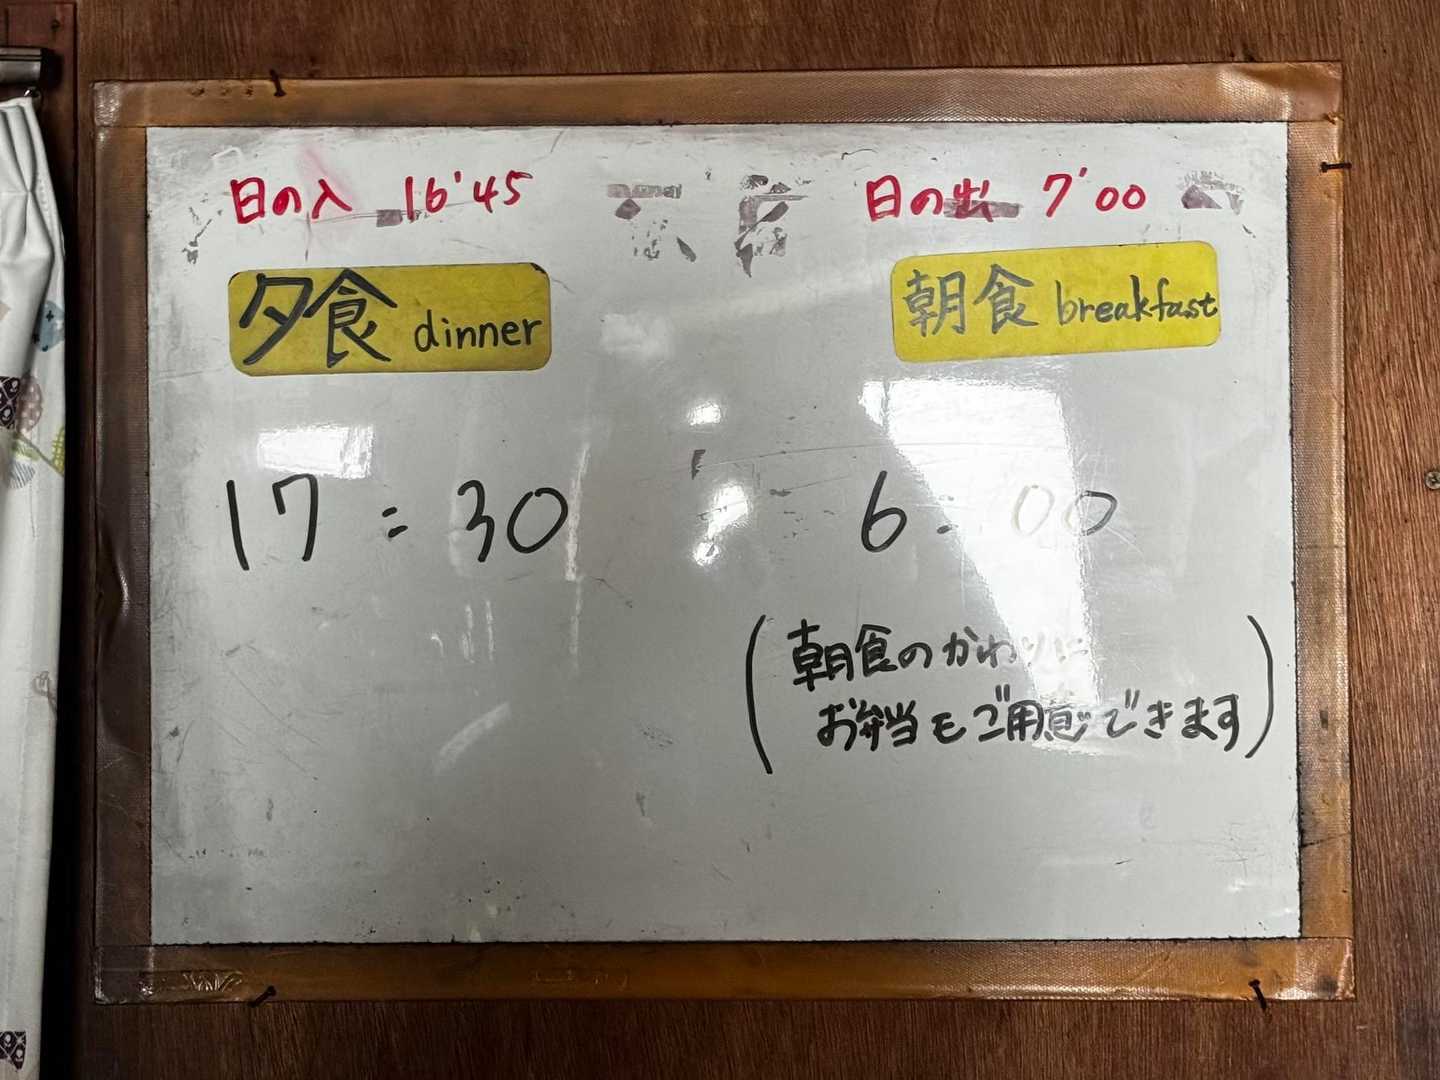 日の入 16'45
夕食 dinner
17:30
日の出 7'00
朝食 breakfast
6:00
(朝食のかわりに
お弁当もご用意できます)